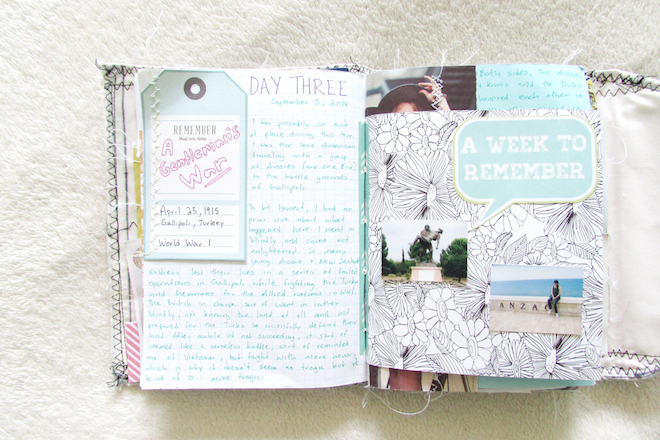 DAY THREE
September 5, 2014
REMEMBER
that one time...
A
Gentleman's
War
April 25, 1915
Gallipoli, Turkey
World War I
I was probably so out
of place during this tour.
I was the lone American
traveling with a group
of Aussies
to the battle grounds
of Gallipoli.
To be honest, I had no
prior idea about what
happened here. I went in
blindly and came out
enlightened. So many
young Aussie + New Zealand
soldiers lost their lives in a series of failed
operations in Gallipoli while fighting the Turks
The British in charge sort of went in rather
blindly, not knowing the land at all and not
prepared for the Turks to
land. After awhile of not succeeding, it sort of
seemed like a senseless battle, sort of reminded
me of Vietnam, but fought with more honor,
which is why it doesn't seem so tragic but
kind of is... more tragic.
Both sides, the Aussies
+ Kiwis and the Turks
honored each other in
A WEEK TO
REMEMBER
ANZAC